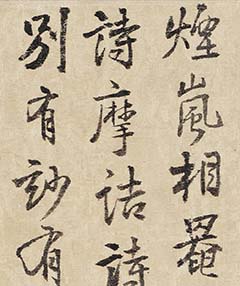 煙嵐相罨
詩摩詰詩
別有妙有